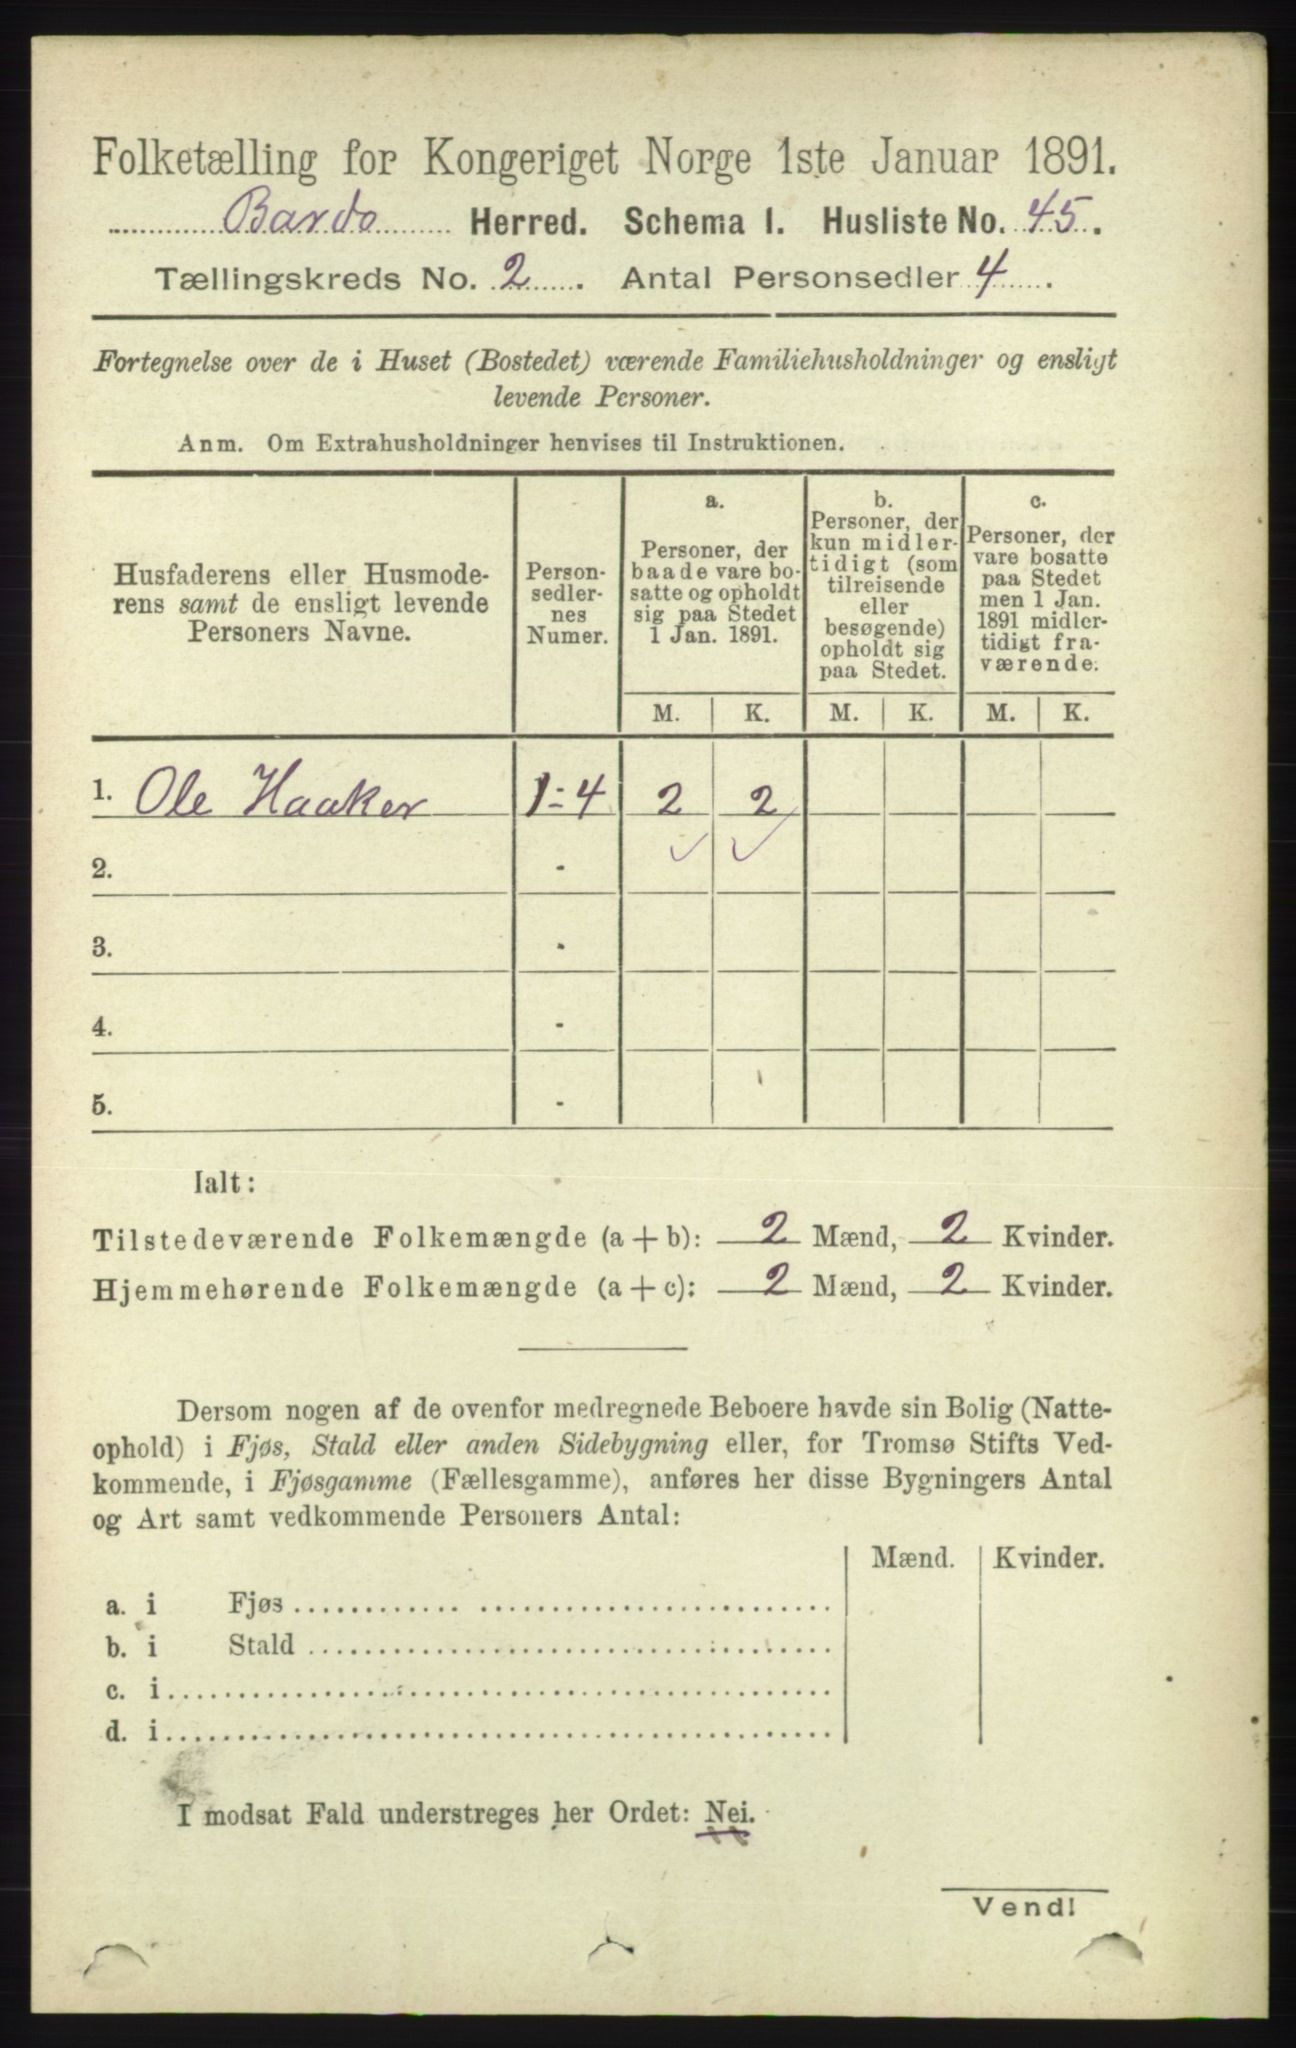 Folketælling for Kongeriget Norge 1ste Januar 1891.
Bardo Herred. Schema I. Husliste No. 45.
Tællingskreds No. 2. Antal Personsedler 4.
Fortegnelse over de i Huset (Bostedet) værende Familiehusholdninger og ensligt
levende Personer.
Anm. Om Extrahusholdninger henvises til Instruktionen.
Husfaderens eller Husmode-
rens samt de ensligt levende
Personers Navne.
Person-
sedler-
nes
Numer.
a.
Personer, der
baade vare bo-
satte og opholdt
sig paa Stedet
1 Jan. 1891.
b.
Personer, der
kun midler-
tidigt (som
tilreisende
eller
besøgende)
opholdt sig
paa Stedet.
c.
Personer, der
vare bosatte
paa Stedet
men 1 Jan.
1891 midler-
tidigt fra-
værende.
M. K. M. K. M. K.
1. Ole Haaker 1-4 2 2
2. -
3. -
4. -
5. -
Ialt:
Tilstedeværende Folkemængde (a + b): 2 Mænd, 2 Kvinder.
Hjemmehørende Folkemængde (a + c): 2 Mænd, 2 Kvinder.
Dersom nogen af de ovenfor medregnede Beboere havde sin Bolig (Natte-
ophold) i Fjøs, Stald eller anden Sidebygning eller, for Tromsø Stifts Ved-
kommende, i Fjøsgamme (Fællesgamme), anføres her disse Bygningers Antal
og Art samt vedkommende Personers Antal:
Mænd. Kvinder.
a. i Fjøs
b. i Stald
c. i
d. i
I modsat Fald understreges her Ordet: Nei.
Vend!